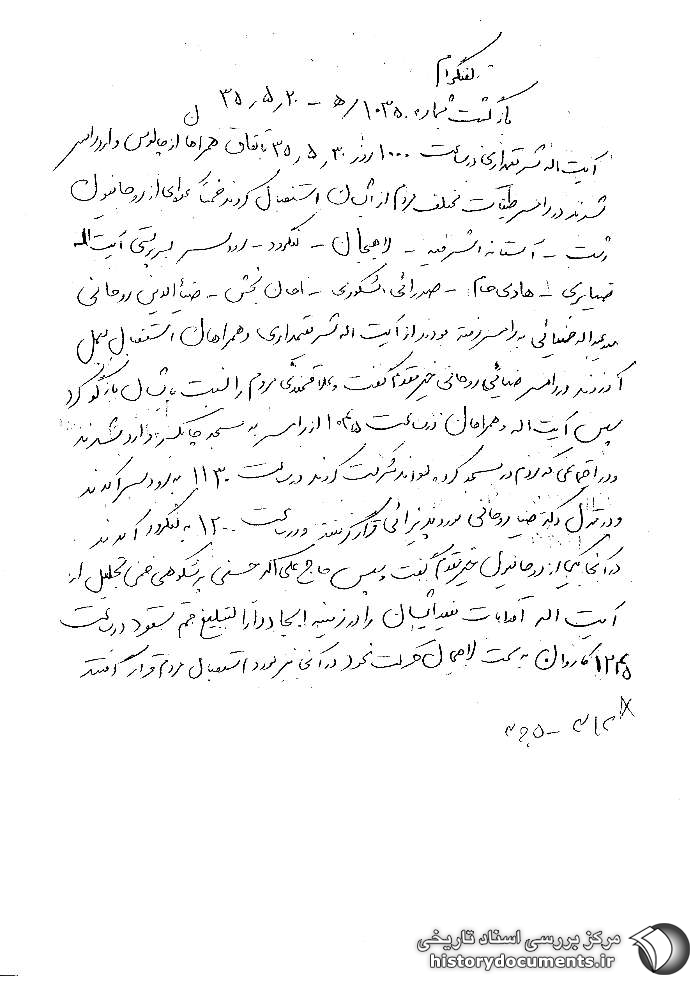 تلفنگرام
بازگشت شماره 10350/ه‍ – 35٫5٫20
آیت اله شریعتمداری در ساعت 1000 روز 35٫5٫30 باتفاق همراهان از چالوس وارد رامسر
شدند در رامسر طبقات مختلف مردم از ایشان استقبال کردند ضمناً عده‌ای از روحانیون
رشت – آستانه اشرفیه – لاهیجان – لنگرود – رودسر بسرپرستی آیت اله
ضیابری – هادی – صدرائی اشکوری – احسان بخش – ضیاالدین روحانی
ضیائی به رامسر رفته بودند از آیت اله شریعتمداری و همراهان استقبال بعمل
آوردند در رامسر ضیائی روحانی خیر مقدم گفت و علاقمندی مردم را نسبت بایشان بازگو کرد
سپس آیت اله و همراهان در ساعت 1045 از رامسر به مسجد چابکسر وارد شدند
و در اجتماعی که مردم در مسجد کرده بودند شرکت کردند در ساعت 1130 به رودسر آمدند
و در منزل دکتر ضیا روحانی مورد پذیرائی قرار گرفتند و در ساعت 1200 به لنگرود آمدند
در آنجا یکی از روحانیون خیر مقدم گفت و سپس حاج علی اکبر حسنی پرشکوهی ضمن تجلیل از
آیت اله اقدامات مفید ایشان را در زمینه ایجاد دارالتبلیغ قم ستود در ساعت
1245 کاروان به سمت لاهیجان حرکت نمود در آنجا نیز مورد استقبال مردم قرار گرفتند
مرکز بررسی اسناد تاریخی
historydocuments.ir